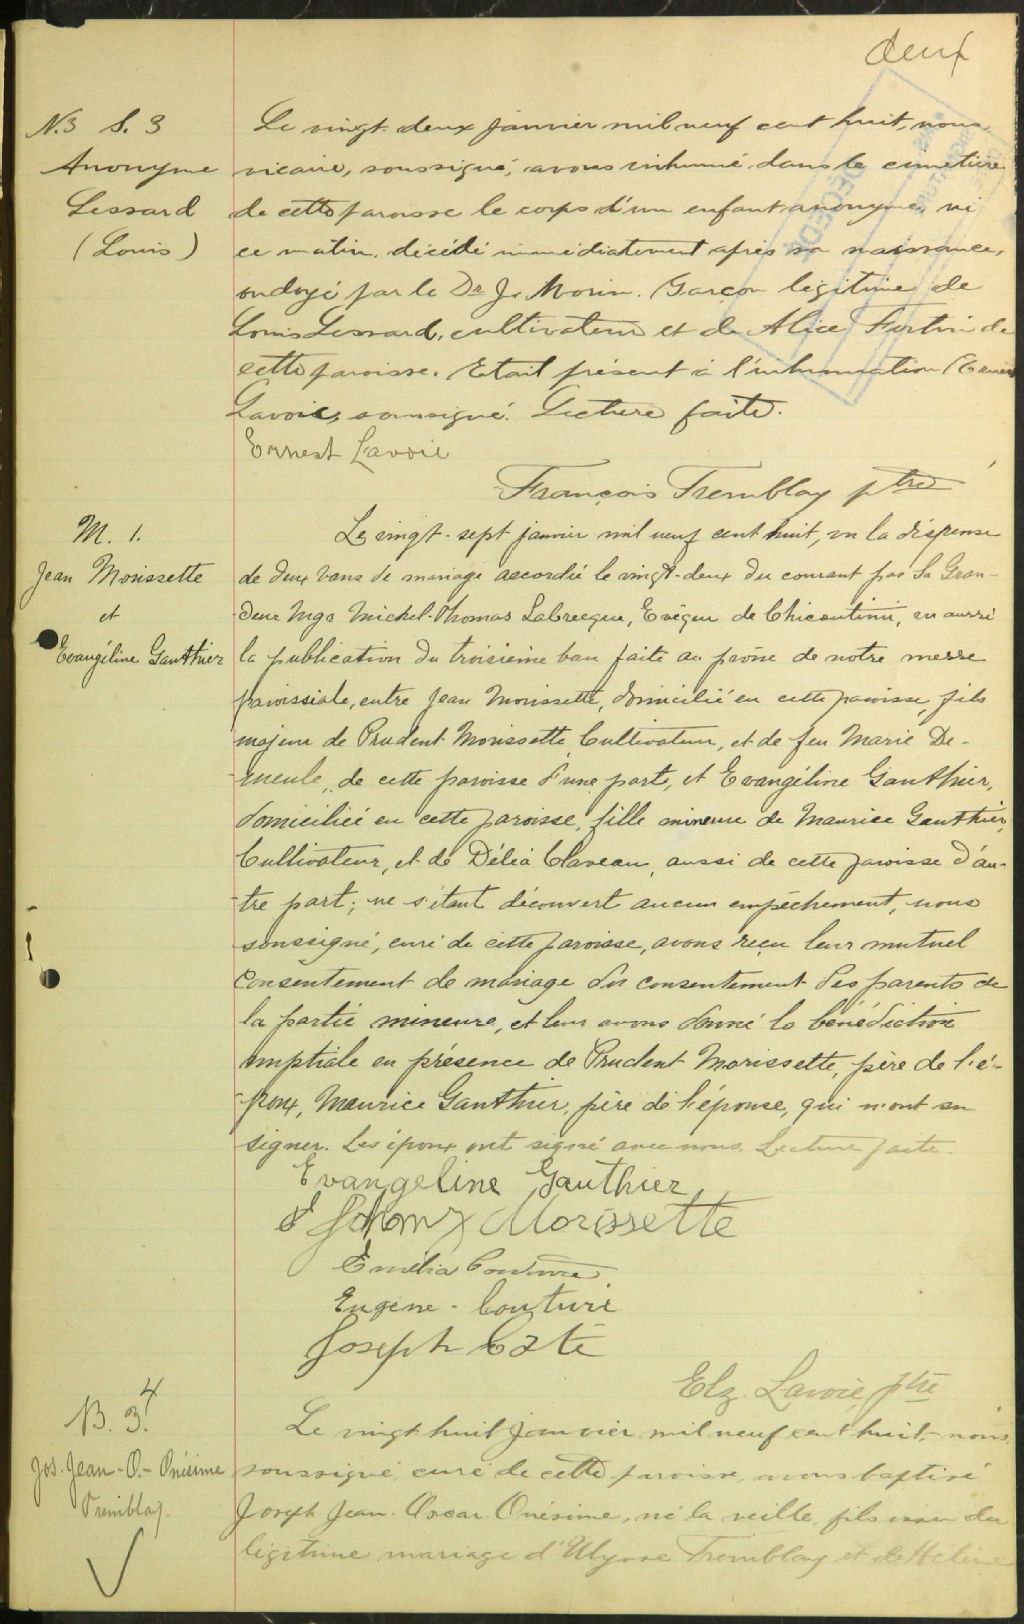 deux
N.3 S. 3
Anonyme
Lessard
(Louis)
Le vingt-deux janvier mil neuf cent huit, nous
vicaire, soussigné, avons inhumé dans le cimetière
de cette paroisse le corps d'un enfant anonyme, né
ce matin, décédé immédiatement après sa naissance,
ondoyé par le Dr J. Morin. Garçon légitime de
Louis Lessard, cultivateur et de Alice Fortin de
cette paroisse. Etait présent à l'inhumation Ernest
Lavoie, soussigné. Lecture faite.
Ernest Lavoie
François Tremblay ptre
M. 1.
Jean Morissette
et
Evangéline Gauthier
Le vingt-sept janvier mil neuf cent huit, vu la dispense
de deux bans de mariage accordée le vingt-deux du courant par Sa Gran-
deur Mgr Michel-Thomas Labrecque, Evêque de Chicoutimi, vu aussi
la publication du troisième ban faite au prône de notre messe
paroissiale, entre Jean Morissette, domicilié en cette paroisse, fils
majeur de Prudent Morissette Cultivateur, et de feu Marie De-
meule, de cette paroisse d'une part, et Evangéline Gauthier,
domiciliée en cette paroisse, fille mineure de Maurice Gauthier,
Cultivateur, et de Délia Claveau, aussi de cette paroisse d'au-
tre part; ne s'étant découvert aucun empêchement, nous
soussigné, curé de cette paroisse, avons reçu leur mutuel
consentement de mariage du consentement des parents de
la partie mineure, et leur avons donné la bénédiction
nuptiale en présence de Prudent Morissette, père de l'é-
poux, Maurice Gauthier, père de l'épouse, qui n'ont su
signer. Les époux ont signé avec nous. Lecture faite.
Evangeline Gauthier
Johny Morissette
Emélia Couture
Eugene Couture
Joseph Coté
Elz. Lavoie, ptre
B. 3. 4
Jos. Jean-O.- Onésime
Tremblay.
Le vingt huit janvier mil neuf cent huit, nous
soussigné curé de cette paroisse, avons baptisé
Joseph Jean-Oscar Onésime, né la veille, fils issu du
légitime mariage d'Ulysse Tremblay et de Hélène